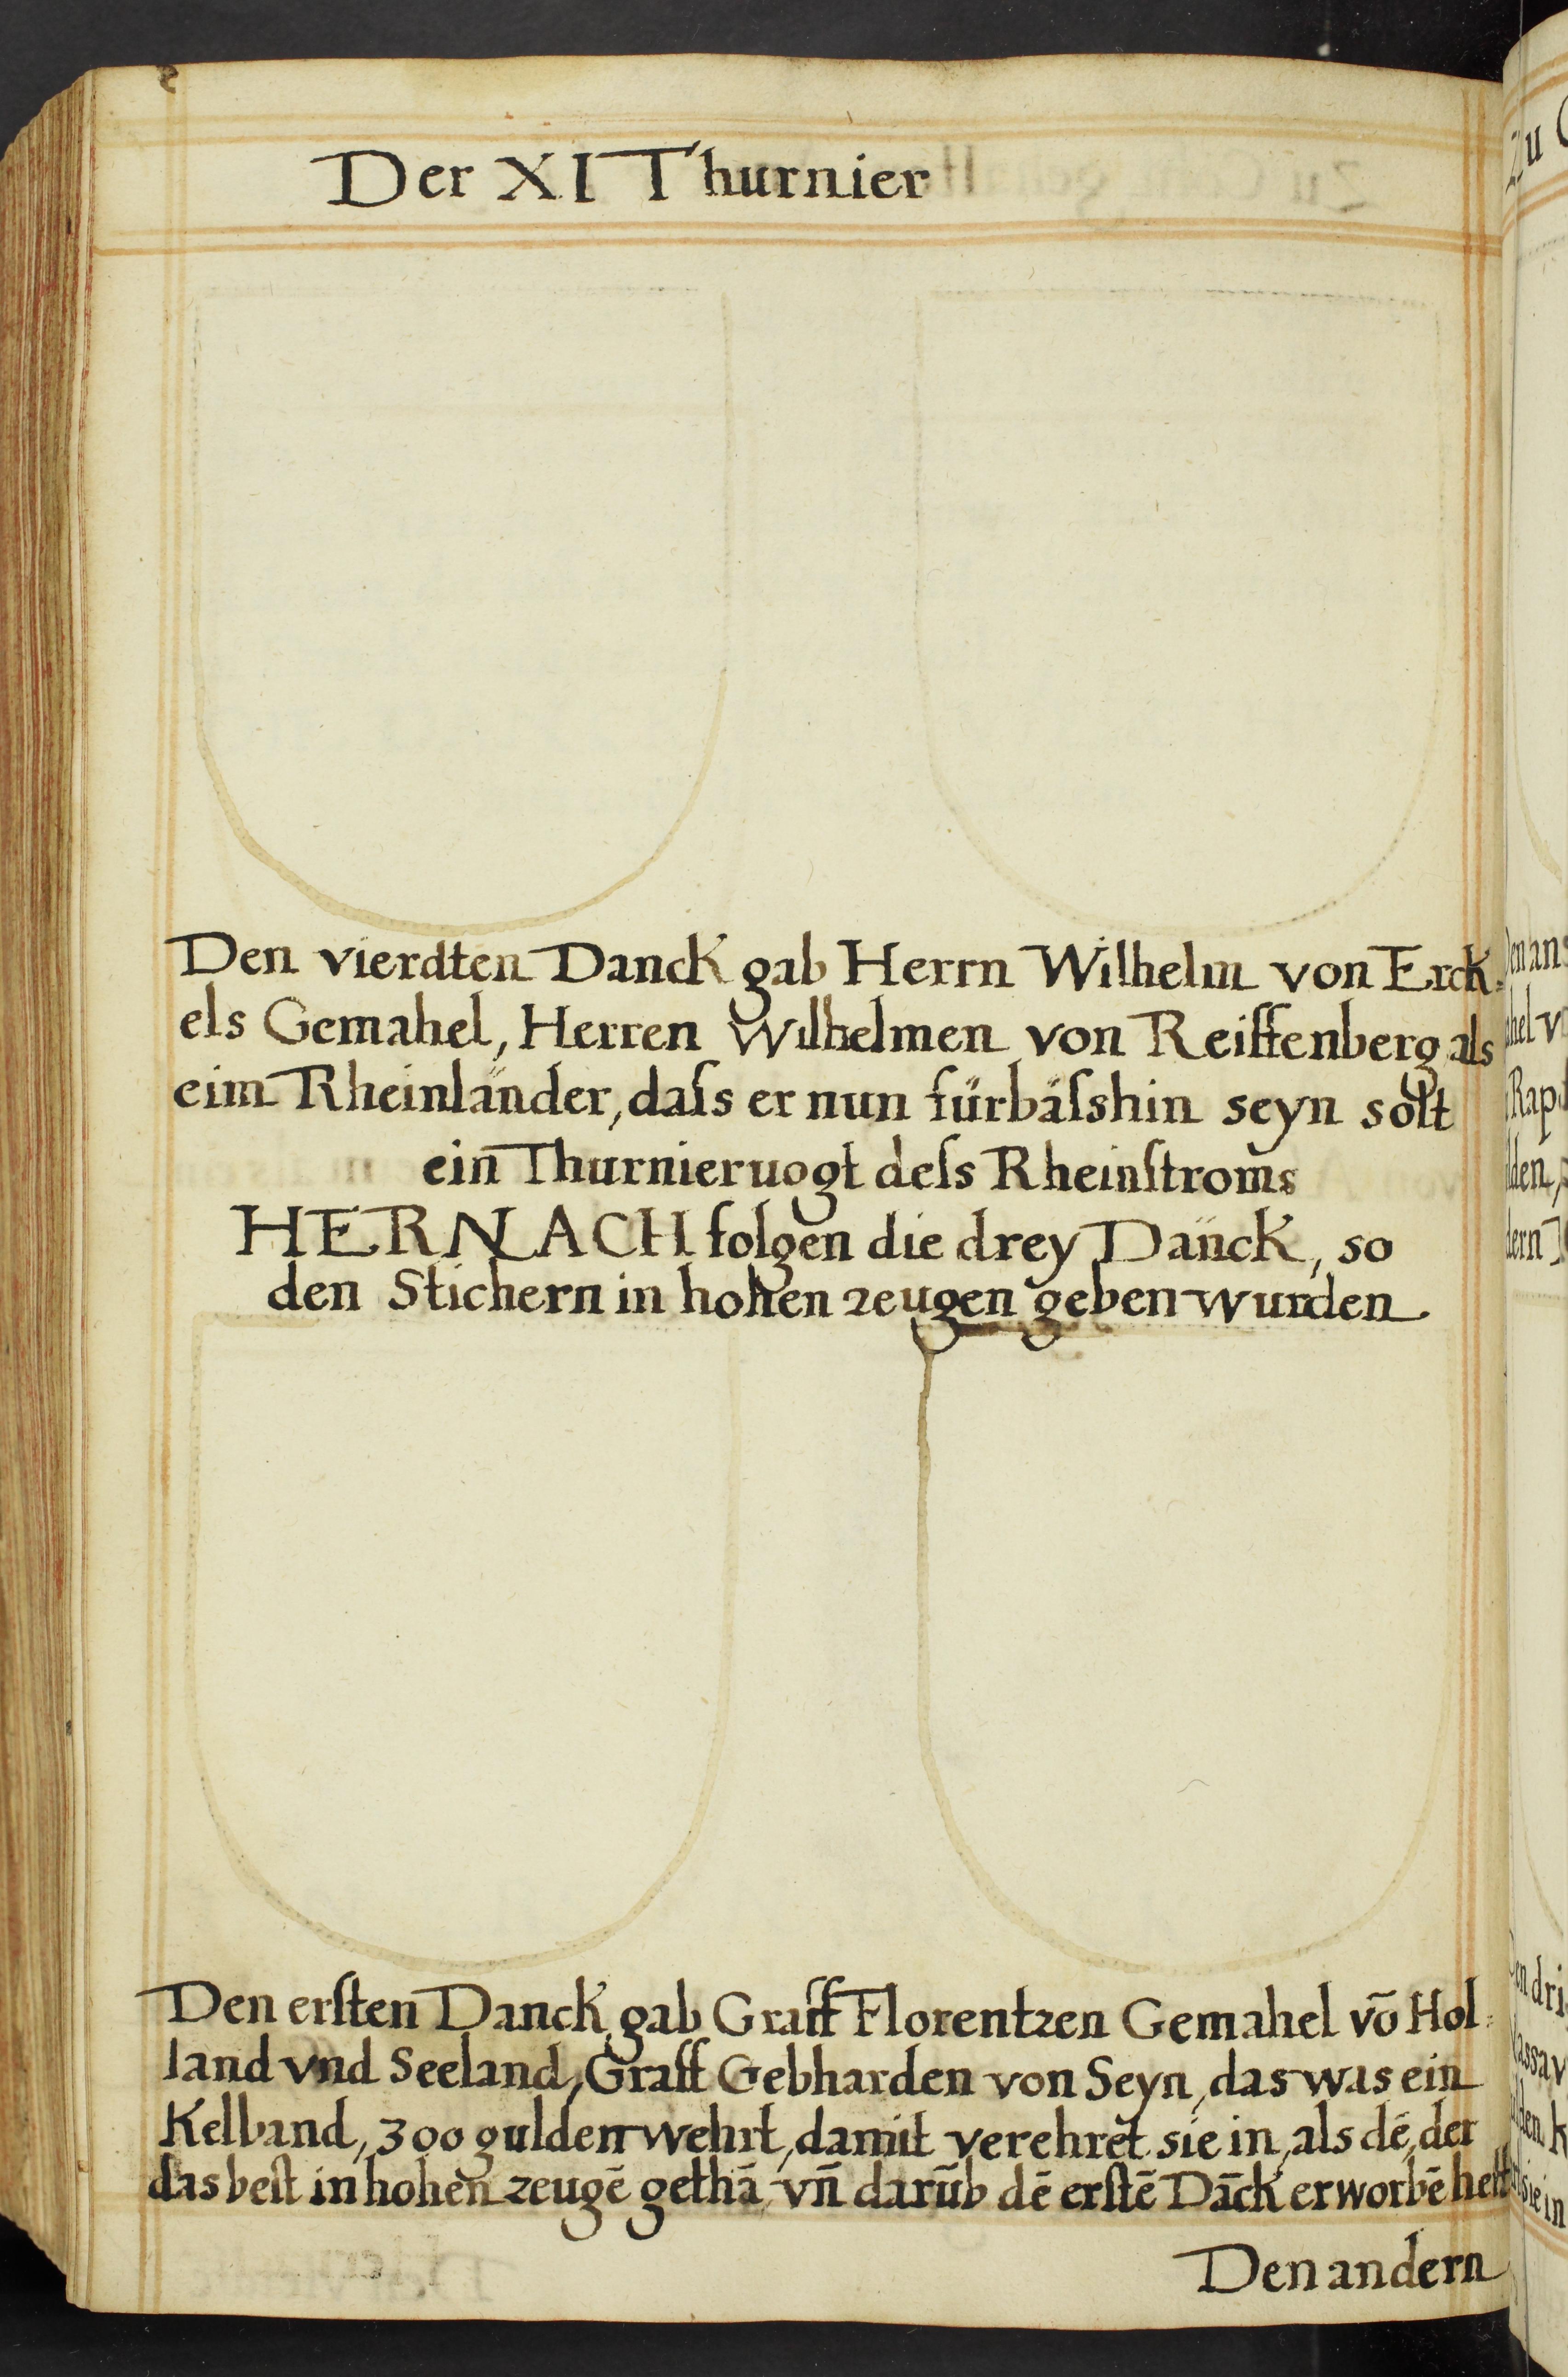 Der XI Thurnier
Den vierdten Danck gab Herrn Wilhelm von Erck=
els Gemahel, Herren Wilhelmen von Reiffenberg, als
eim Rheinländer, daſs er nun fürbäſshin seyn solt
ein Thurnieruogt deſs Rheinſtroms
HERNACH folgen die drey Dänck, so
den Stichern in hohen zeugen geben wurden
Den erſten Danck gab Graff Florentzen Gemahel vō Hol=
land vnd Seeland, Graff Gebharden von Seyn, das was ein
Kelband, 300 gulden wehrt, damit verehret sie in, als dē, der
das beſt in hohen zeugē gethā, vn̄ darūb dē erſtē Dāck erworbē hett
Den andern